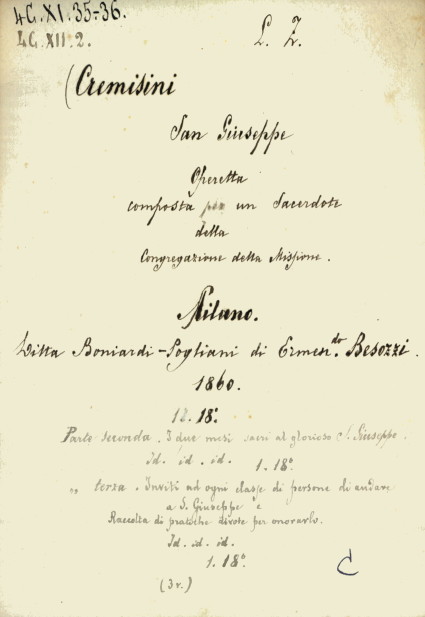 4G.XI.35-36.
4G.XII.2.
L. Z.
(Cremisini
San Giuseppe
Operetta
composta per un Sacerdote
della
Congregazione della Missione.
Milano.
Ditta Boniardi-Pogliani di Ermen.do Besozzi.
1860.
12. 18.o
Parte seconda. I due mesi sacri al glorioso S. Giuseppe.
Id. id. id. 1. 18o
„ terza. Inviti ad ogni classe di persone di andare
a S. Giuseppe e
Raccolta di pratiche divote per onorarlo.
Id. id. id.
1. 18.o
(3 v.)
C